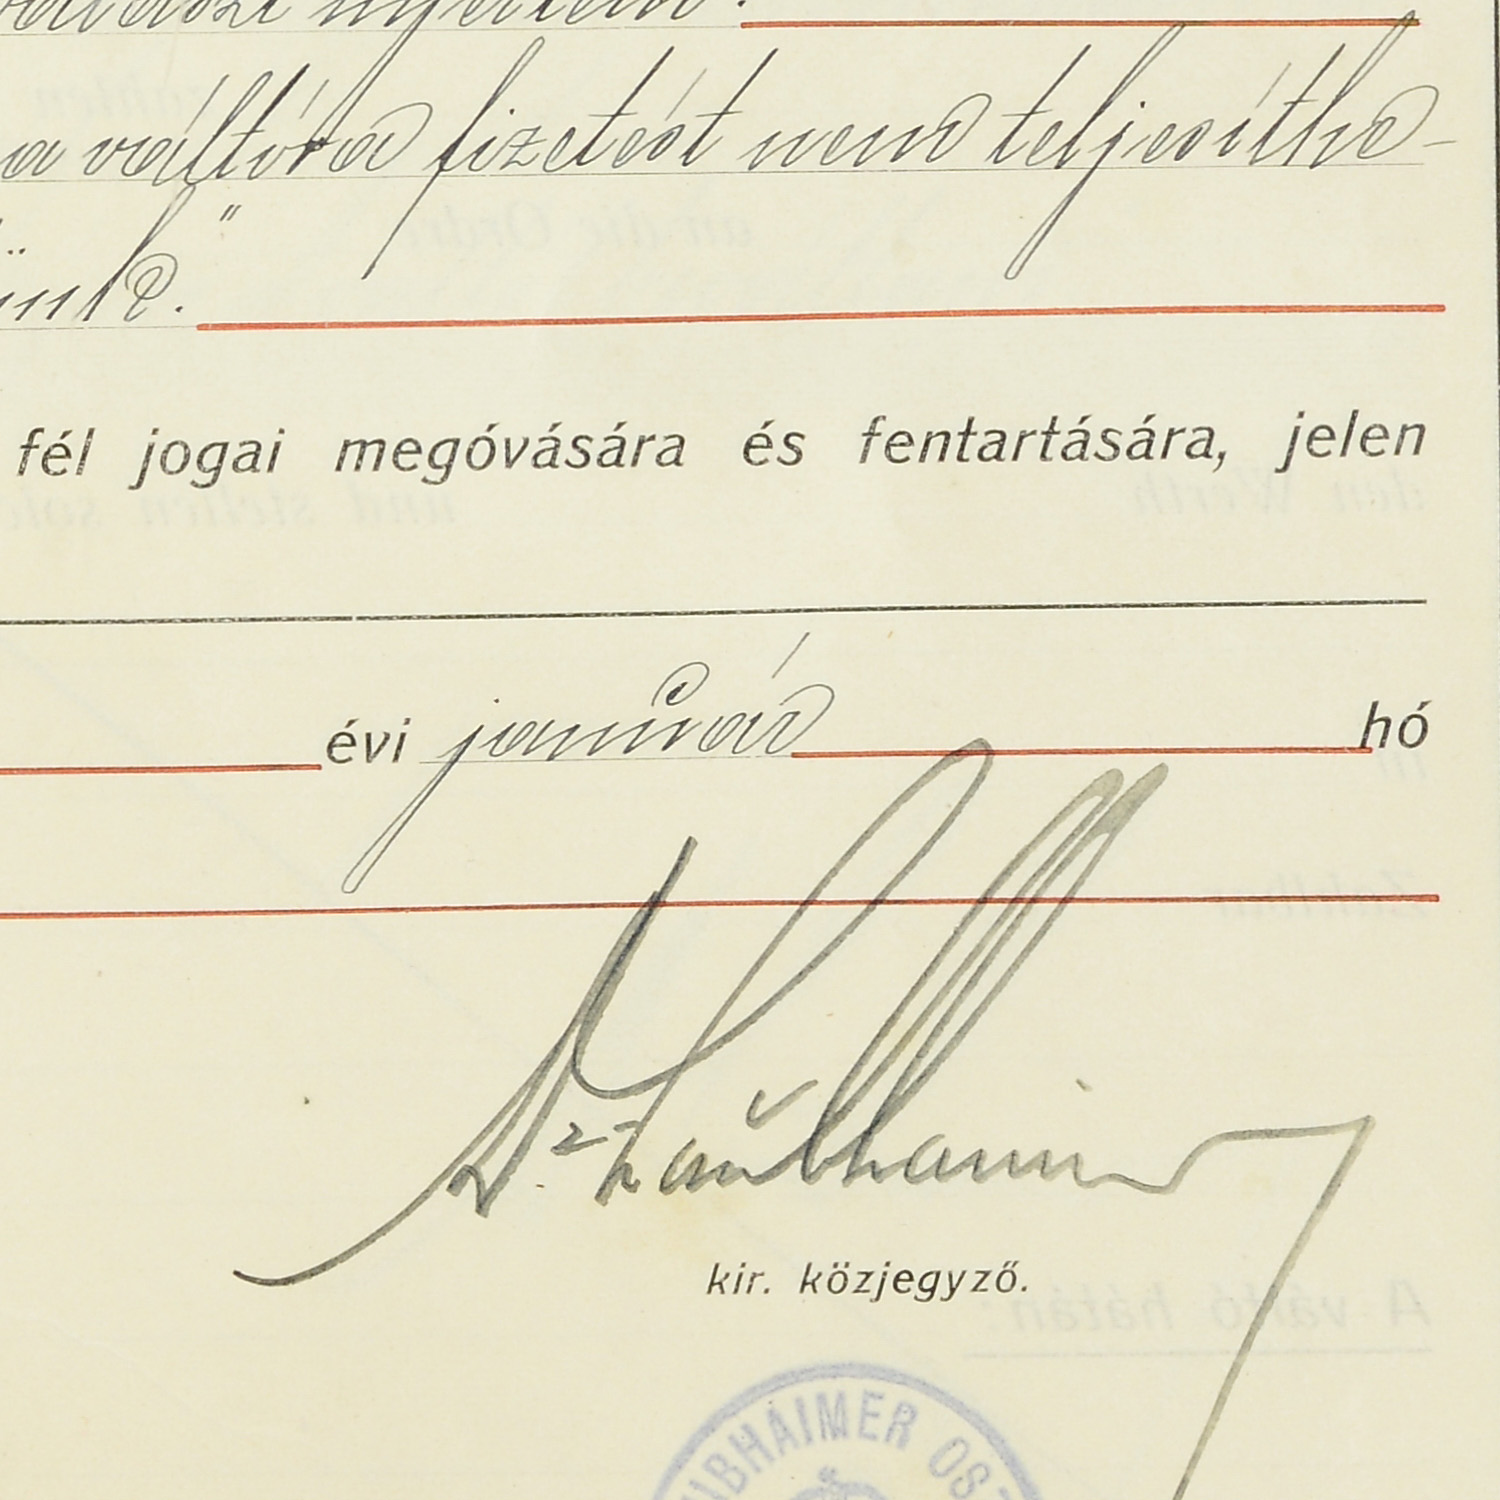 nyertem.
a váltóra fizetést nem teljesíthe-
tünk."
fél jogai megóvására és fentartására, jelen
évi január hó
Dr Laubhaimer
kir. közjegyző.
UBHAIMER OSZ